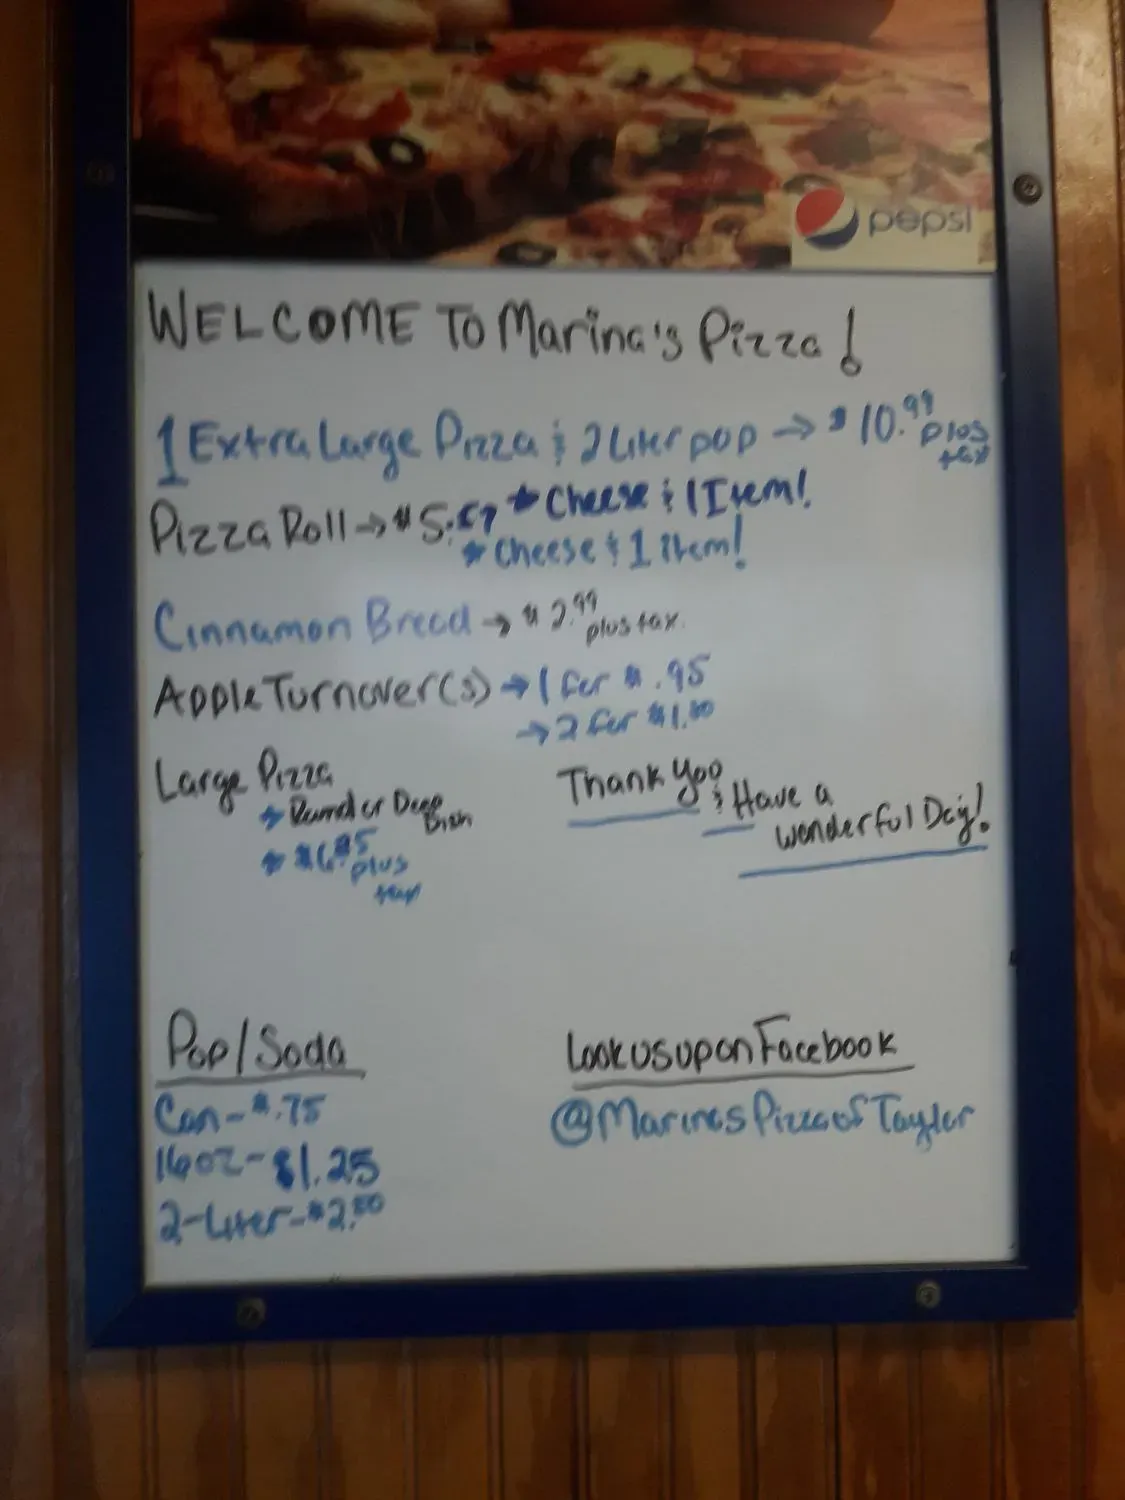 pepsi
WELCOME TO Marina's Pizza!
1 Extra Large Pizza & 2 Liter pop → $10.99 plus tax
Pizza Roll → $5. * Cheese & 1 Item!
* Cheese & 1 Item!
Cinnamon Bread → $2.99 plus tax.
Apple Turnover(s) → 1 for $.95
→ 2 for $1.80
Large Pizza
→ Round or Deep Dish
plus tax
Thank You
& Have a
wonderful Day!
Pop/Soda
Can - $.75
16oz - $1.25
2-Liter - $2.80
Look us up on Facebook
@MarinasPizzaofTaylor